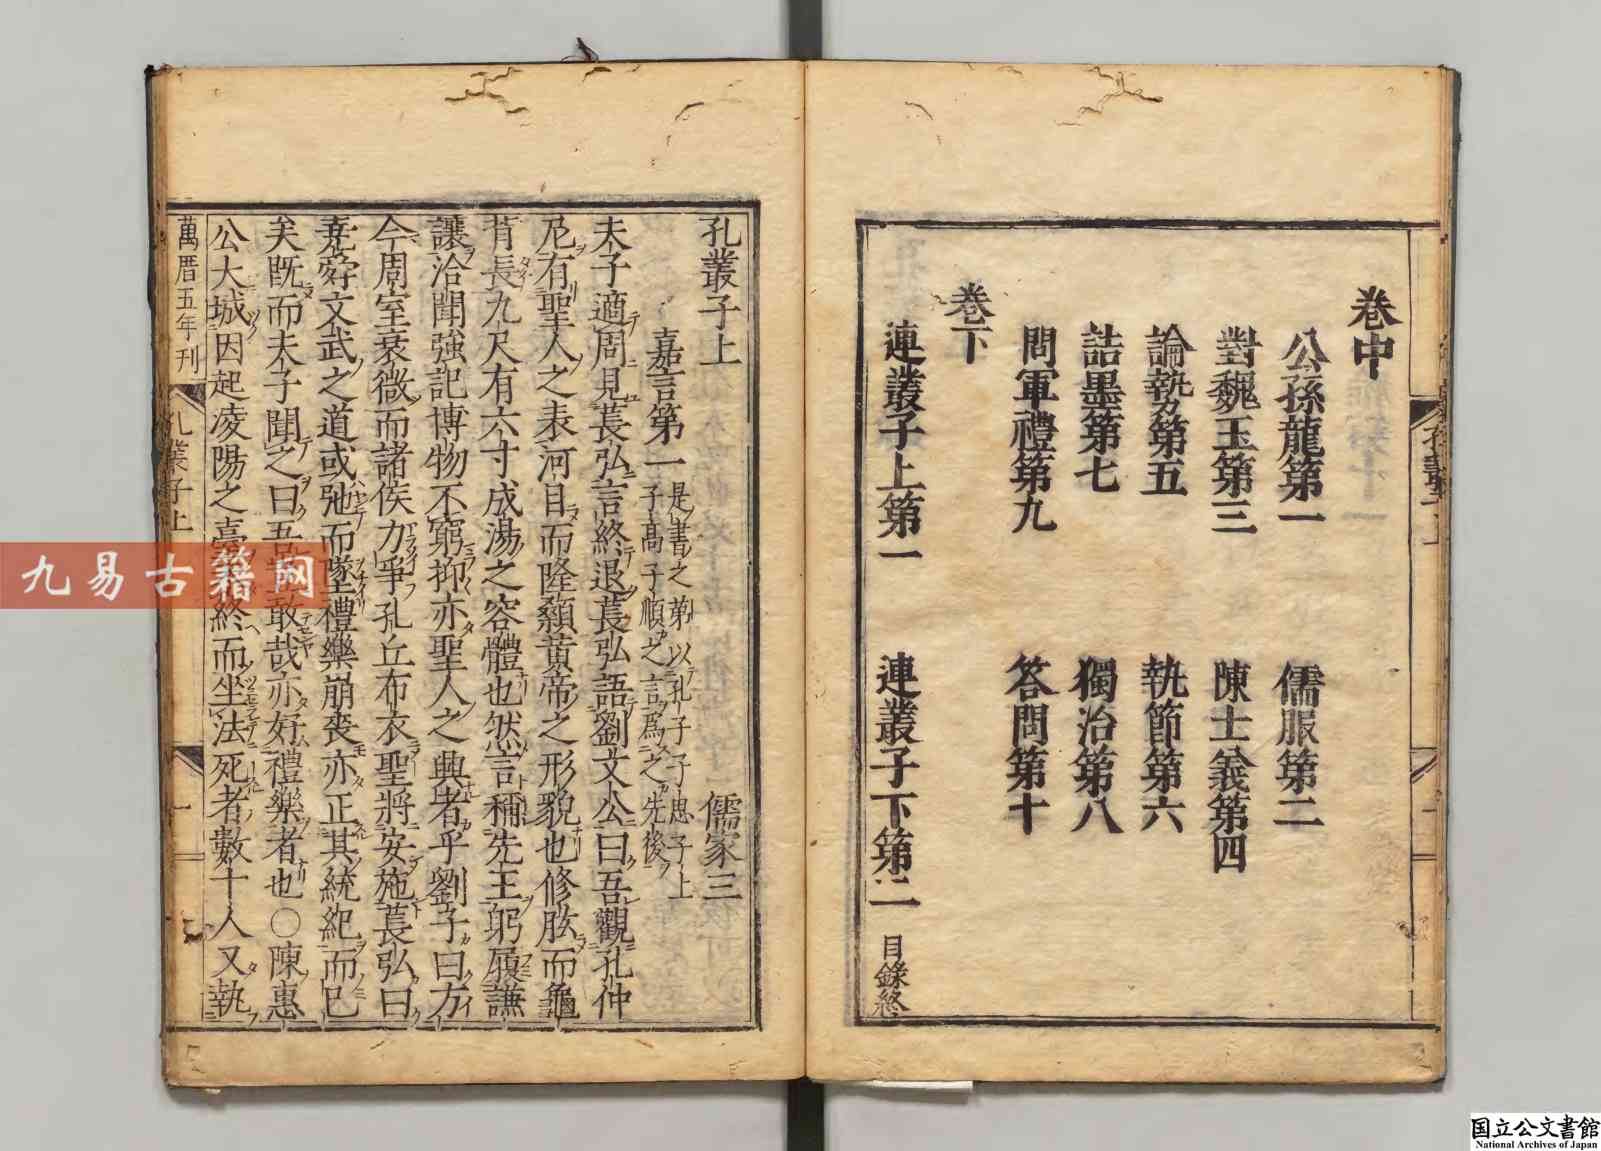 卷中
公孫龍第一　儒服第二
對魏王第三　陳士義第四
論埶第五　執節第六
詰墨第七　獨治第八
問軍禮第九　答問第十
卷下
連叢子上第一　連叢子下第二　目錄終
孔叢子上　儒家三
嘉言第一　是書之第以孔子子思子上
子髙子順之言爲之先後
夫子適周見萇弘言終退萇弘語劉文公曰吾觀孔仲
尼有聖人之表河目而隆顙黃帝之形貌也修肱而龜
背長九尺有六寸成湯之容體也然言稱先王躬履謙
讓洽聞強記博物不窮抑亦聖人之興者乎劉子曰方
今周室衰微而諸侯力爭孔丘布衣聖將安施萇弘曰
堯舜文武之道或弛而墜禮樂崩喪亦正其統紀而已
矣既而夫子聞之曰吾敢哉亦好禮樂者也〇陳惠
公大城因起凌陽之臺終而坐法死者數十人又執
萬曆五年刊　孔叢子上　一
九易古籍网
国立公文書館
National Archives of Japan